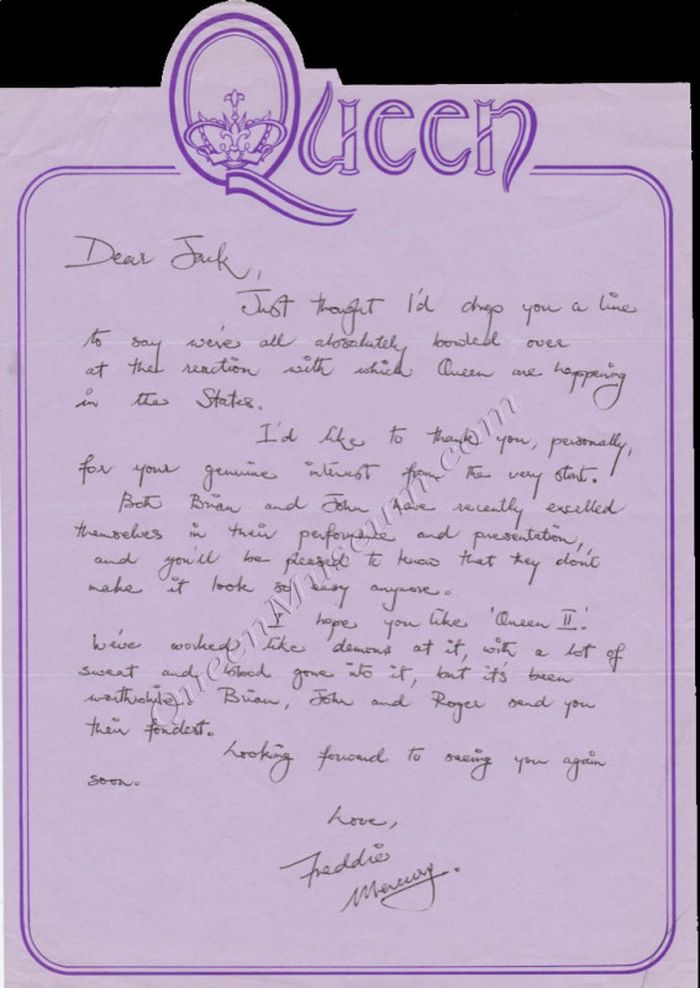 Queen
Dear Jack,
Just thought I'd drop you a line
to say we're all absolutely bowled over
at the reaction with which Queen are happening
in the States.
I'd like to thank you, personally,
for your genuine interest from the very start.
Both Brian and John have recently excelled
themselves in their performance and presentation,
and you'll be pleased to know that they don't
make it look so easy anymore.
I hope you like 'Queen II'.
We've worked like demons at it, with a lot of
sweat and blood gone into it, but it's been
worthwhile. Brian, John and Roger send you
their fondest.
Looking forward to seeing you again
soon.
Love,
Freddie
Mercury.
QueenMuseum.com